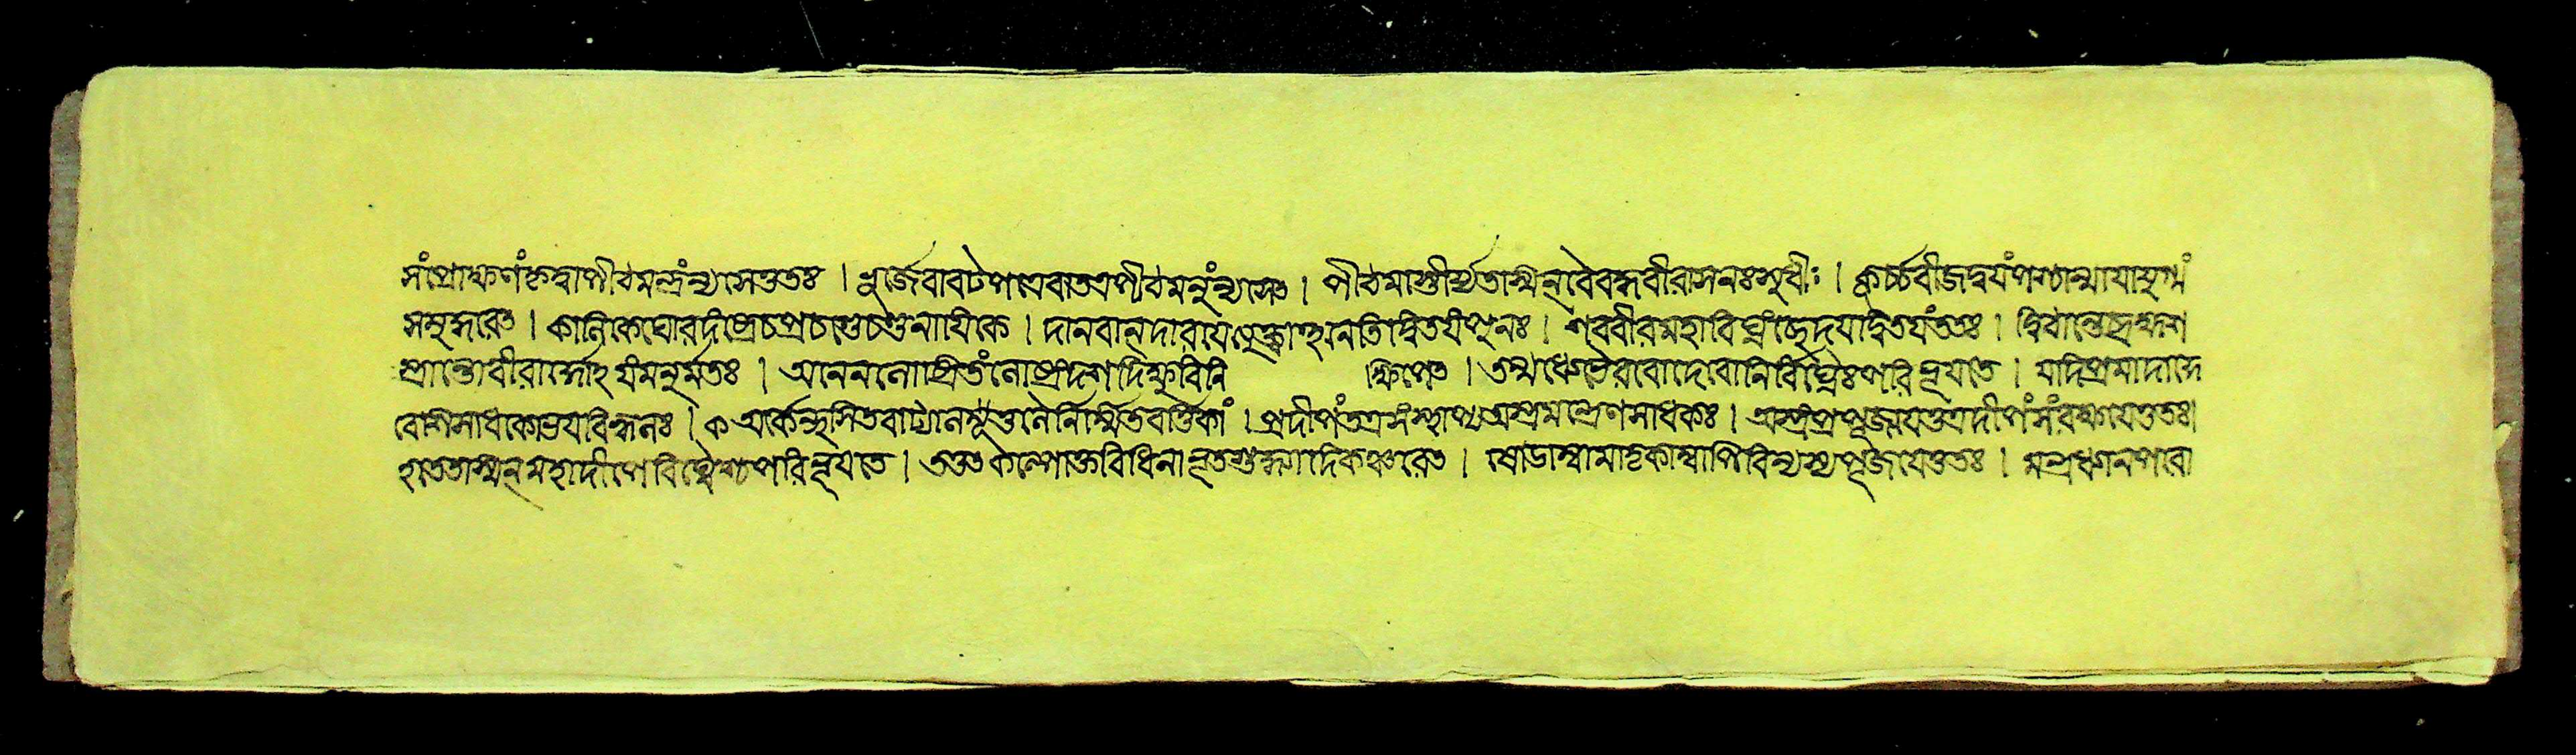 সংপ্রোক্ষণংকৃত্বাপীঠমন্ত্রংন্যসেত্ততঃ । ভূর্জেবাবটপত্রেবাতত্রপীঠমনুংন্যসেৎ । পীঠমাস্তীর্য্যতস্মিন্বৈবদ্ধবীরাসনঃসুধীঃ । কূর্চ্চবীজদ্বয়ংপশ্চান্মায়াযুগ্মং
সমুদ্ধরেৎ । কালিকেঘোরদংষ্ট্রেচপ্রচণ্ডেচণ্ডনায়িকে । দানবান্দারয়েত্যুক্ত্বাহনেতিদ্বিতয়ংপুনঃ । শববীরমহাবিঘ্নংছেদয়দ্বিতয়ংততঃ । দ্বিঠান্তে
প্রান্তোবীরার্দ্দনোঽয়ংমনুর্মতঃ । অনেনলোপ্রিতংলোষ্ট্রংদশদিক্ষুবিনিক্ষিপেৎ । তন্মধ্যেভৈরবোদেবোনির্বিঘ্নৈঃপরিভূয়তে । যদিপ্রমাদাদ্দে
বেশিসাধকোভয়বিহ্বলঃ । অর্কেন্দুসিতবাট্যালসূত্রেনির্ম্মিতবর্ত্তিকাং । প্রদীপংতত্রসংস্থাপ্যঅস্ত্রমন্ত্রেণসাধকঃ । অস্ত্রংপ্রপূজয়েত্তত্রদীপংসংরক্ষয়েত্ততঃ।
হতেতস্মিন্মহাদীপেবিঘ্নৈশ্চপরিভূয়তে । তত্তৎকল্পোক্তবিধিনাভূতশুদ্ধ্যাদিকঞ্চরেৎ । ষোঢাম্বামাতৃকাম্বাপিবিন্যস্যপূজয়েত্ততঃ । মন্ত্রধ্যানপরো